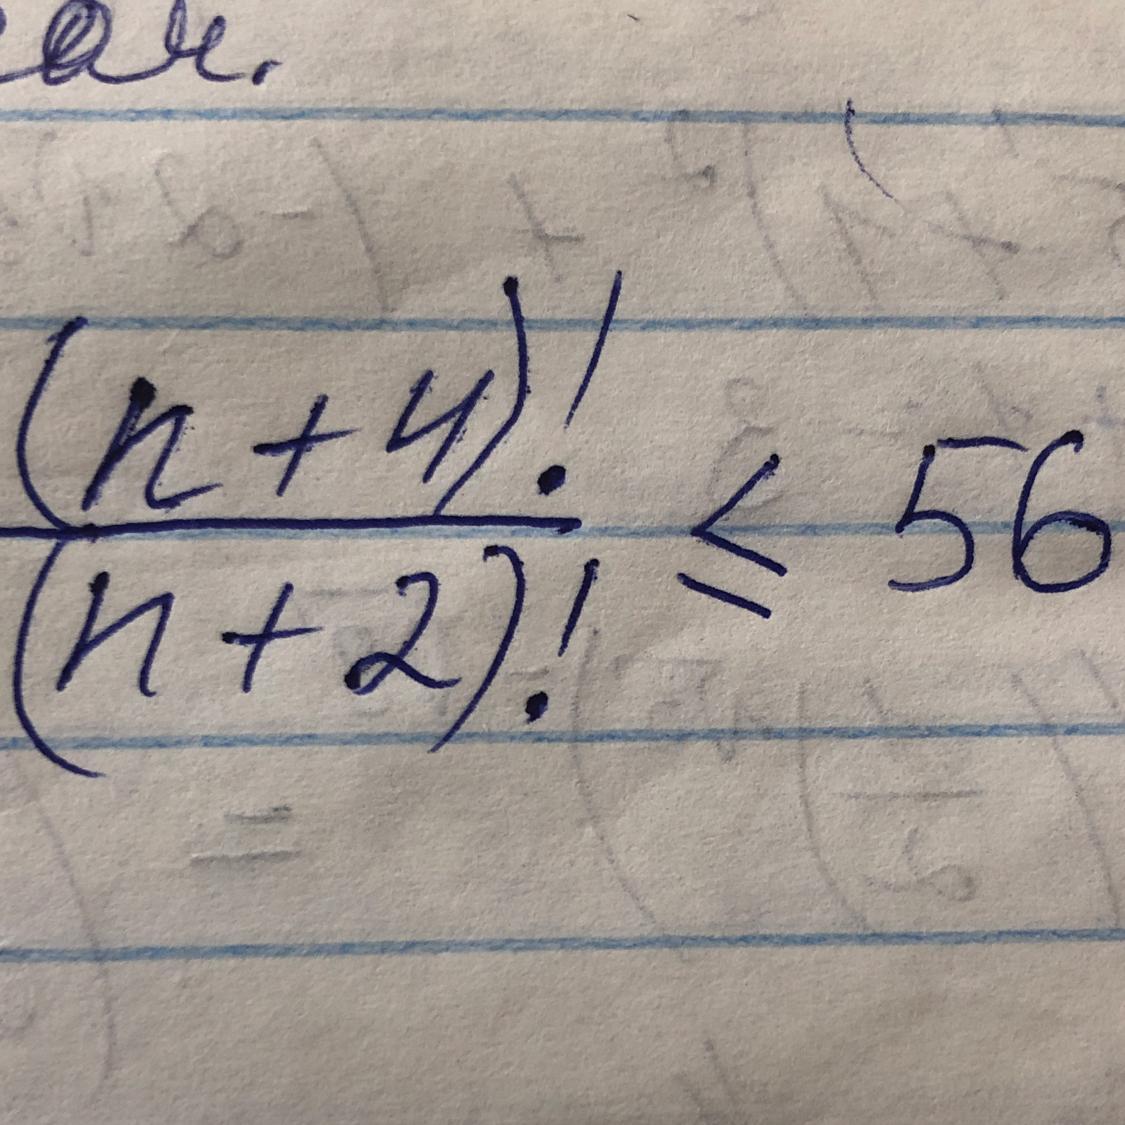 (n+4)!
(n+2)! ≤ 56